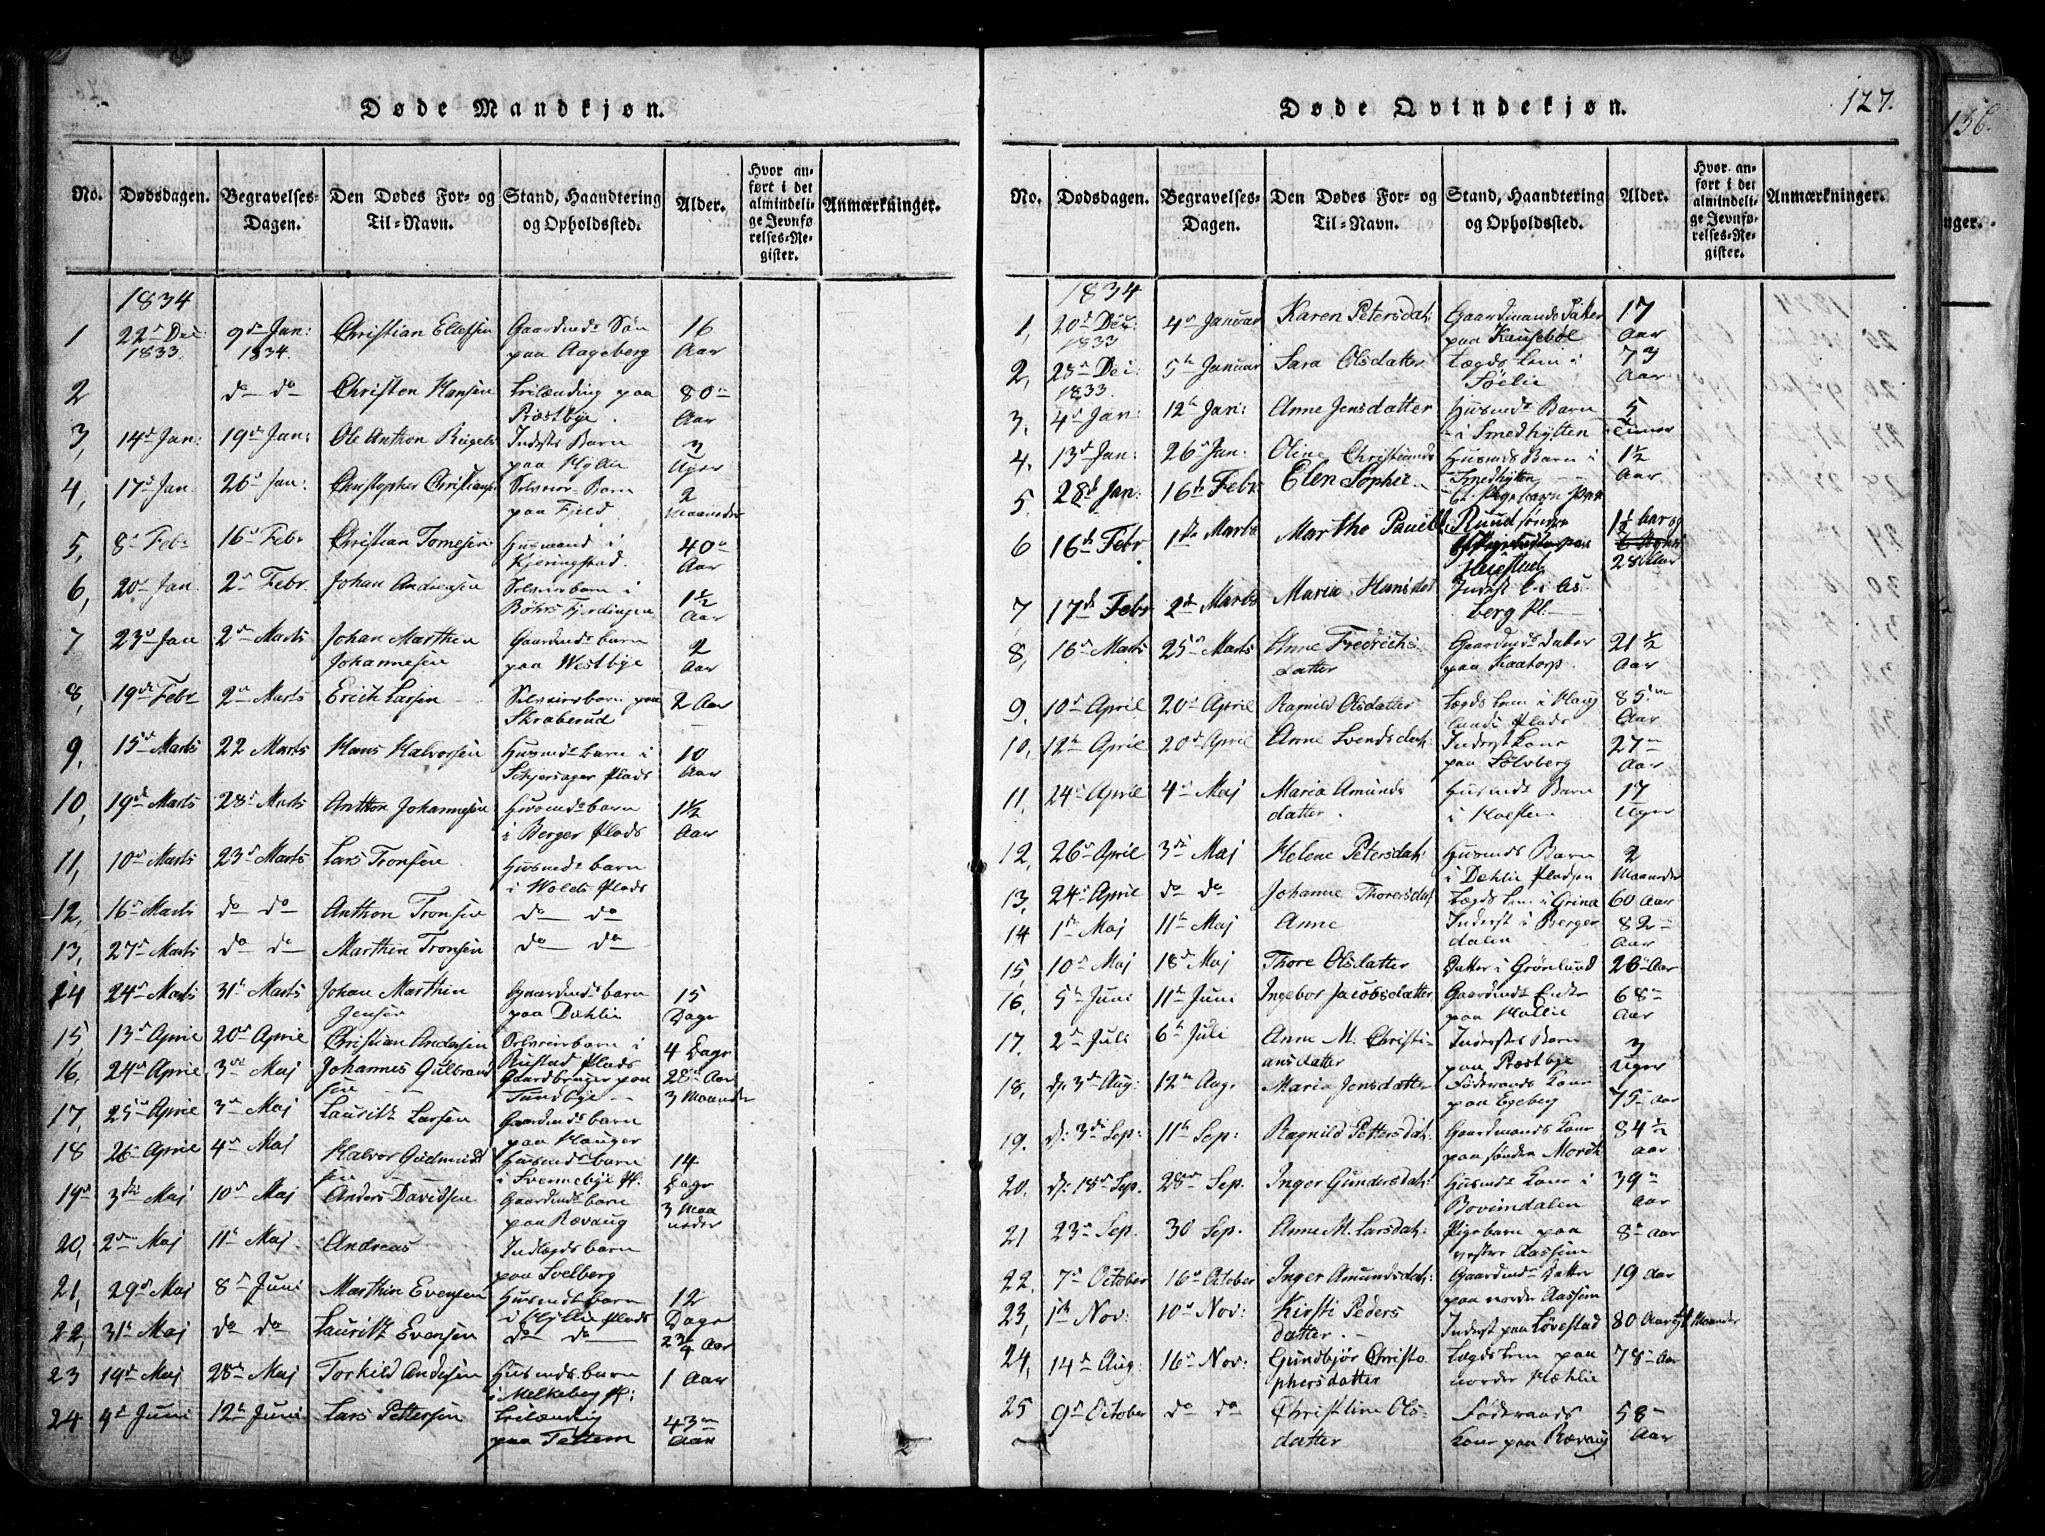 Døde Mandkjøn.
No. Dødsdagen. Begravelses-Dagen. Den Dødes For- og Til-Navn. Stand, Haandtering og Opholdssted. Alder. Hvor anført i det almindelige Jevnførelses-Register. Anmærkninger.
1834
1 22 Dec: 1833. 9 Jan: 1834. Christian Ellefsen Gaardmds Søn paa Aageberg 16 Aar
2 do do Christen Hansen paa Præstbye. 80 Aar
3, 14 Jan: 19 Jan: Ole Anthon Inderstes Barn paa 3 Uger
4, 17 Jan 26 Jan: Christopher Christians: Barn paa Fjeld. 2 Maaneder
5, 8 Febr 16 Febr Christian Tomesen Husmand i Kjeringstad. 40 Aar
6, 20 Jan 2 Febr. Johan Andreasen 1½ Aar
7 23 Jan 2 Marts Johan Marthin Johannesen Gaardmds barn paa Westbye 2 Aar
8, 19 Febr 2 Marts Erich Larsen paa Skraberud 2 Aar
9, 15 Marts 22 Marts Hans Halvorsen Husmds barn i Plads 10 Aar
10, 19 Marts 28 Marts Anthon Johannesen Husmds barn i Berger Plads 1½ Aar
11, 10 Marts 23 Marts Lars Tronsen Husmds barn i Wolds Plads
12, 16 Marts do do Anthon Tronsen do do
13, 27 Marts do do Marthin Tronsen do do
14 24 Marts 31 Marts Johan Marthin Jensen Gaardmds barn paa Dæhlie 15 Dage
15, 13 Aprie 20 Aprie Christian Andersen barn i Rustad Plads 4 Dage
16, 24 Aprie 3 Maj Johannes Gulbrandsen Gaardbruger paa Tundbye 28 Aar
17, 25 Aprie 3 Maj Lauritz Larsen Gaardmds barn paa Hauger 3 Maaneder
18 26 Aprie 4 Maj Halvor Gudmundsen Husmds barn i Svennebye Pl: 14 Dage
19 3die Maj 10 Maj Anders Davidsen Gaardmds barn paa Rævaug 3 Maaneder
20, 2 Maj 11 Maj. Andreas Indlægds barn paa Svelberg
21, 29 Maj 8 Juni Marthin Evensen Husmds barn i Plads 12 Dage
22, 31 Maj do do Lauritz Evensen do do 2¾ Aar
23 19 Maj 28 Maj Torkild Andersen Husmds barn i Melkeberg Pl: 1 Aar
24 4 Juni 12 Juni Lars Pettersen paa Tettem 43 Aar
Døde Qvindekjøn.
127.
No. Dødsdagen. Begravelses-Dagen. Den Dødes For- og Til-Navn. Stand, Haandtering og Opholdssted. Alder. Hvor anført i det almindelige Jevnførelses-Register. Anmærkninger.
1834
1, 20 Dec: 1833 4 Januar Karen Petersdat: Gaardmands Datter paa 17 Aar
2, 28 Dec: 1833. 5 Januar Sara Olsdatter Lægdslem i Søelie 73 Aar
3. 4 Jan: 12 Jan: Anne Jensdatter Husmds Barn i Smedhytten 5 Timer
4. 13 Jan: 26 Jan: Oline Christiansd Husmds Barn i Smedhytten 1½ Aar
5. 28 Jan: 16 Febr Elen Sophie Et Pigebarn paa Ruud søndre 1½ Aar og
6 16 Febr 1ste Marts Marthe 28 Aar
7, 17 Febr 2 Marts Maria Hansdat Inderst i Aasberg Pl.
8, 16 Marts 25 Marts Anne Fredrichsdatter Gaardmds Datter paa Kaatorp. 21½ Aar
9. 10 April 20 April Ragnild Olsdatter Lægdslem i Hauglunds Plads 85 Aar
10, 12 April 20 April Anne Svendsdat: Inderst Kone paa Solvberg 27 Aar
11. 24 April 4 Maj Maria Amundsdatter. Husmds Barn i Holsten 17 Uger
12, 26 April 3 Maj Helene Petersdat: Husmds Barn i Dæhlie Pladsen 2 Maaneder
13, 24 April do do Johanne Thoresdat Lægdslem i Grina 60 Aar
14 1 Maj 11 Maj Anne Inderst i Bergerdalen 82 Aar
15, 10 Maj 18 Maj Thore Olsdatter Datter i Grønlund 26 Aar
16, 5 Juni 11 Juni Ingebor Jacobsdatter Gaardmds Enke paa Hollie 68 Aar
17. 2 Juli 6 Juli Anne M. Christiansdatter Inderstes Barn paa Præstbye 3 Uger
18, d: 3 Aug: 12 Aug: Maria Jonsdatter Føderaads Kone paa Egeberg 75 Aar
19. d: 3 Sep: 11 Sep: Ragnild Pettersdat: Gaardmands Kone paa søndre Mordt 84½ Aar
20. d: 18 Sep. 28 Sep. Inger Gundersdat: Husmds Kone i Bovimdalen 39 Aar
21 23 Sep. 30 Sep. Anne M. Larsdat: Pigebarn paa vestre Aassim 8 Aar
22. 7 October 16 October Inger Amundsdat: Gaardmds Datter paa nordre Aassim 19 Aar
23, 1 Nov: 10 Nov: Kirsti Pedersdatter. Inderst paa Løvestad 80 Aar og Maaneder
24, 14 Aug: 16 Nov: Gundbjør Christophersdatter Lægdslem paa nordre Hæhlie 78 Aar
25 9 October do do Christine Olsdatter Føderaads Kone paa Rævaug 58 Aar
136.
nger.